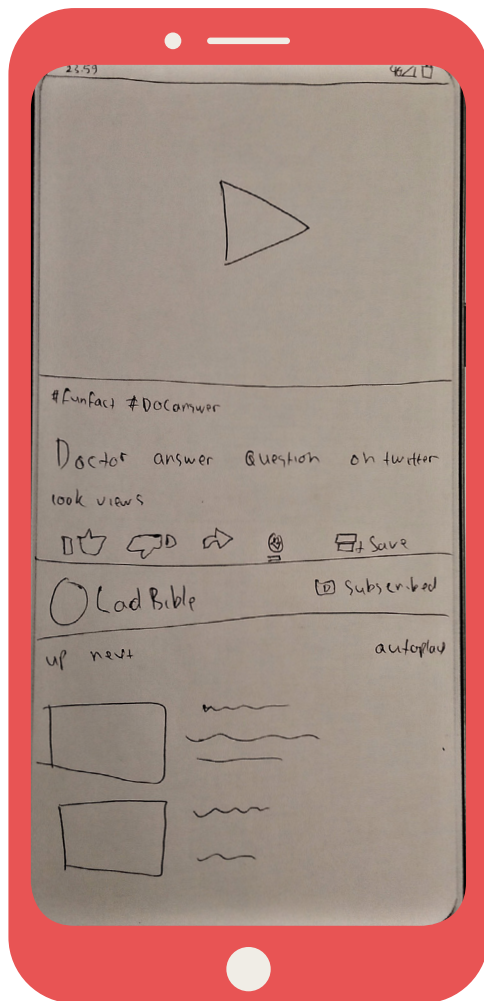 23:59 4G
#funfact #Docanswer
Doctor answer Question on twitter
100k views
+ Save
Lad Bible Subscribed
up next autoplay